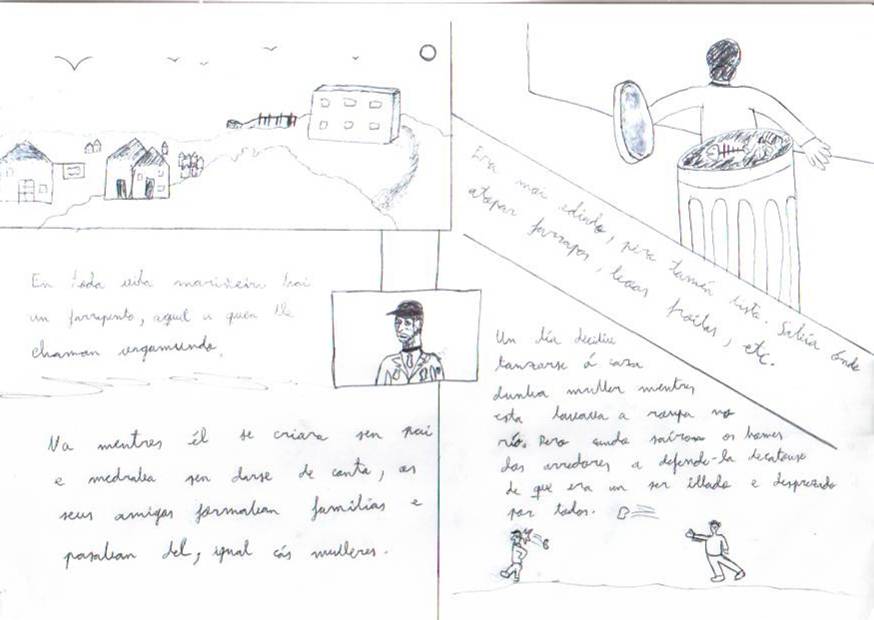 En toda vila mariñeira hai
un farrapento, aquel a quen lle
chaman vagamundo.
Na mentres él se criara sen pai
e medraba sen darse de conta, os
seus amigos formaban familias e
pasaban del, igual cás mulleres.
Era moi odiado, pero tamén listo. Sabía onde
atopar farrapos, froitas, etc.
Un día decidiu
lanzarse á
dunha muller mentres
esta lavaba a roupa no
río. Pero cando saíron os homes
dos arredores a defende-la decatouse
de que era un ser illado e desprezado
por todos.